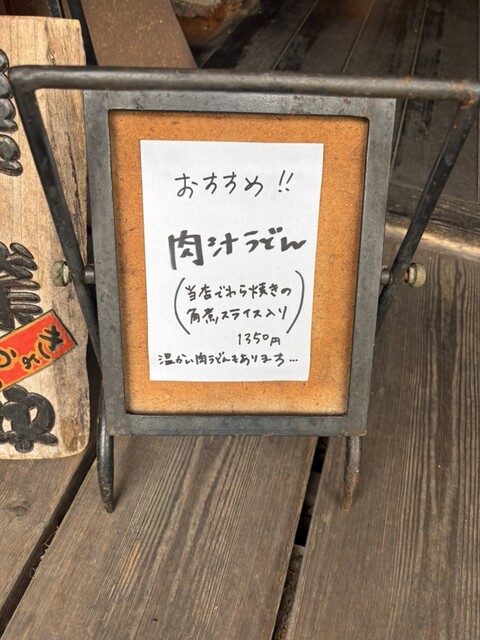 おすすめ!!
肉汁うどん
(当店でわら焼きの
角煮スライス入り)
1350円
温かい肉うどんもあります…